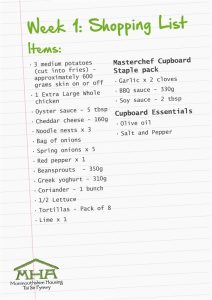 Week 1: Shopping List
Items:
· 3 medium potatoes
(cut into fries) -
approximately 600
grams skin on or off
· 1 Extra Large Whole
chicken
· Oyster sauce - 5 tbsp
· Cheddar cheese - 160g
· Noodle nests x 3
· Bag of onions
· Spring onions x 5
· Red pepper x 1
· Beansprouts - 350g
· Greek yoghurt - 310g
· Coriander - 1 bunch
· 1/2 Lettuce
· Tortillas - Pack of 8
· Lime x 1
Masterchef Cupboard
Staple pack
· Garlic x 2 cloves
· BBQ sauce - 330g
· Soy sauce - 2 tbsp
Cupboard Essentials
· Olive oil
· Salt and Pepper
MHA
Monmouthshire Housing
Tai Sir Fynwy